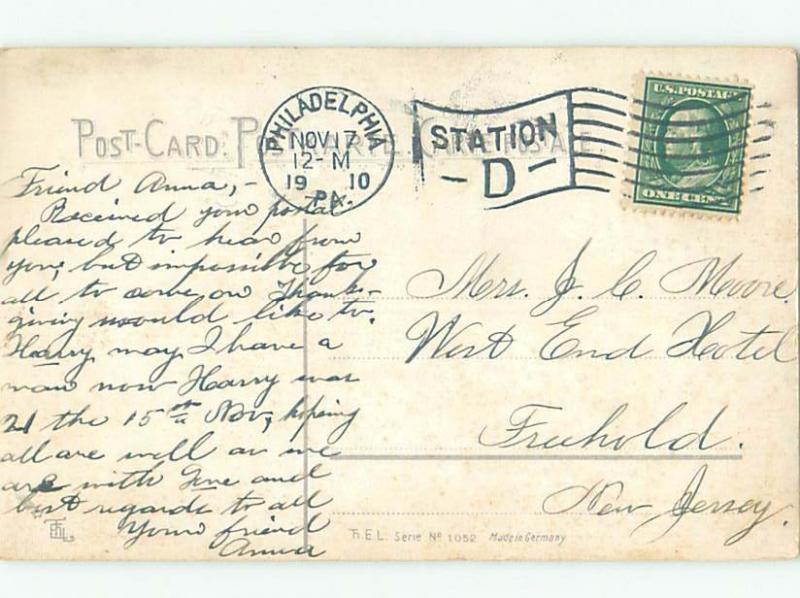 POST-CARD. CARTE POSTALE
PHILADELPHIA
NOV 17
12-M
19 10
PA.
STATION
- D -
U.S. POSTAGE
ONE CENT
Friend Anna, -
Received your postal
pleased to hear from
you; but impossible for
all to come on Thanks-
giving would like to.
Harry may I have a
man now Harry was
21 the 15th Nov, hoping
all are well as we
are with love and
best regards to all
Your friend
Anna
Mrs. J. C. Moore.
West End Hotel
Freehold.
New Jersey.
T.E.L. Serie No 1052 Made in Germany